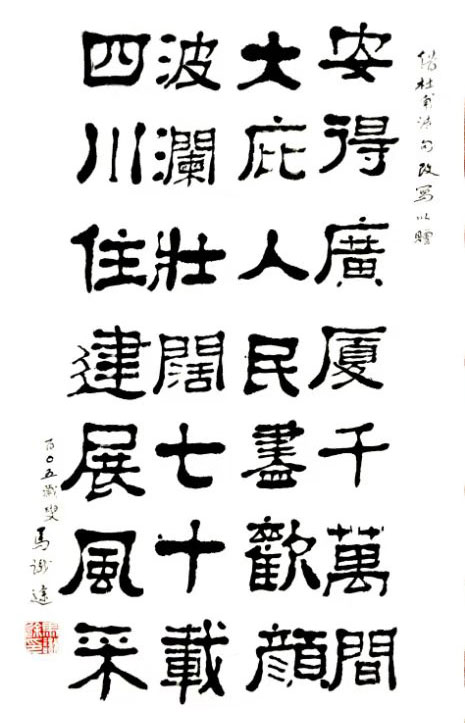 借杜甫诗句改寫以贈
安得廣厦千萬間
大庇人民盡歡顔
波瀾壯闊七十載
四川住建展風采
百〇五歲叟馬識途